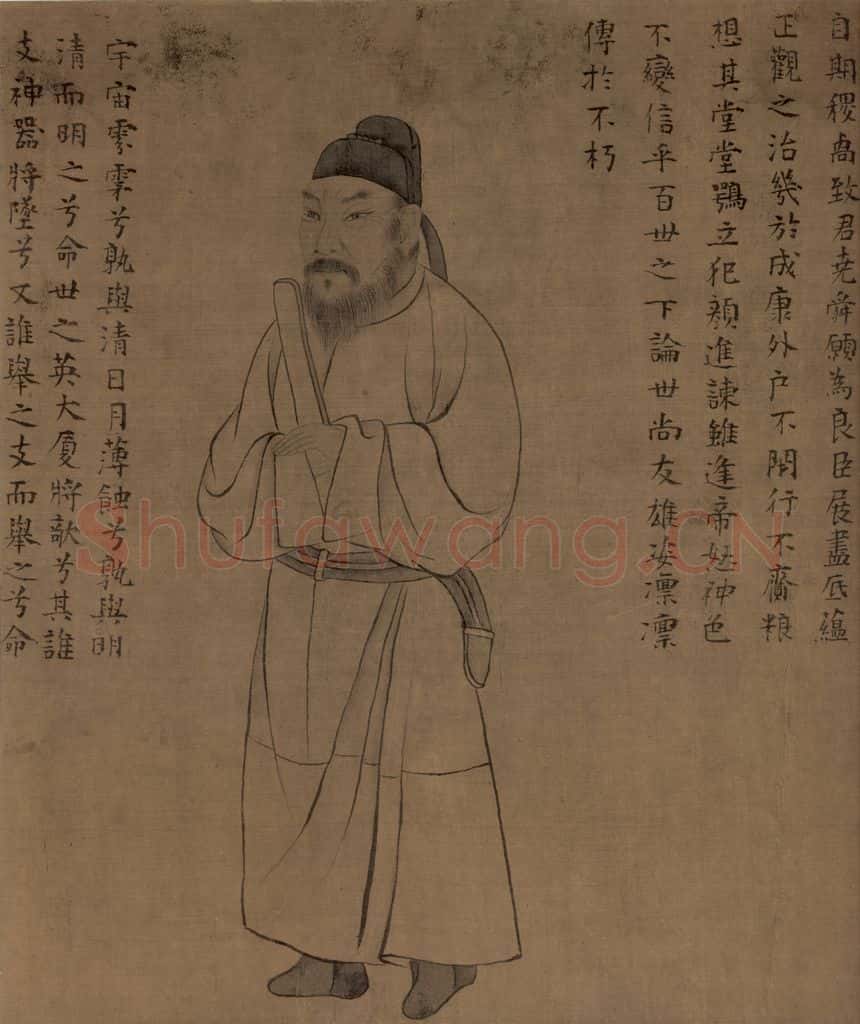 自期稷卨致君堯舜願為良臣展盡底蘊
正觀之治幾於成康外户不閇行不齎粮
想其堂堂鶚立犯顔進諫雖逢帝怒神色
不變信乎百世之下論世尚友雄姿凛凛
傳於不朽
宇宙雰霿兮孰與清日月薄蝕兮孰與明
清而明之兮命世之英大厦將欹兮其誰
支神器將墜兮又誰舉之支而舉之兮命
Shufawang.CN